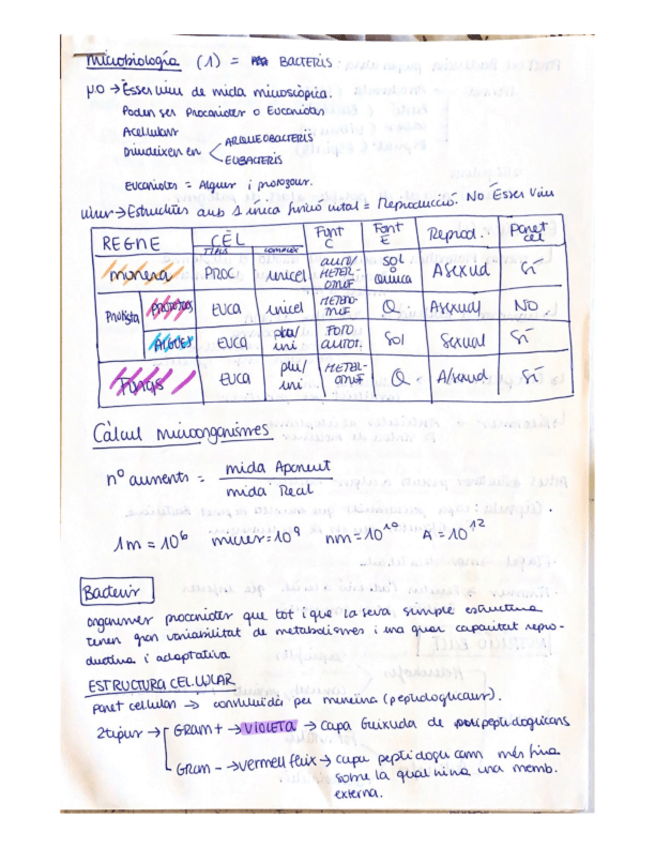 Microbiología (1) = BACTERIS
µO → Ésser viu de mida microscòpica.
Poden ser Procariotes o Eucariotes
Acel·lulars
Divideixen en < ARQUEOBACTERIS
EUBACTERIS
EUCARIOTES = Algues i protozous.
Virus → Estructures amb 1 única funció vital = Reproducció. No Ésser Viu
REGNE CÈL Font C Font E Reprod. Paret cel
TIPUS COMPLEX
monera PROC unicel auto/HETER-OTROF SOL O Química Asexual SÍ
Protista PROTOZOUS EUCA unicel HETERO-TROF Q. Asexual NO
ALGUES EUCA pluri/uni FOTO AUTOT. SOL Sexual SÍ
Fongs EUCA pluri/uni HETER-OTROF Q A/sexual SÍ
Càlcul microorganismes
nº aument = mida Aparent
mida Real
1m = 10⁶ micres = 10⁹ nm = 10¹⁰ A = 10¹²
Bacteris
organismes procariotes que tot i que la seva simple estructura
tenen gran variabilitat de metabolismes i una gran capacitat repro-
ductiva i adaptativa
ESTRUCTURA CEL.LULAR
Paret cel·lular → constituïda per mureïna (peptidoglicans).
2 tipus → GRAM + → VIOLETA → Capa Gruixuda de peptidoglicans
GRAM - → vermell fluix → capa peptidoglicans més fina
sobre la qual hi ha una memb.
externa.